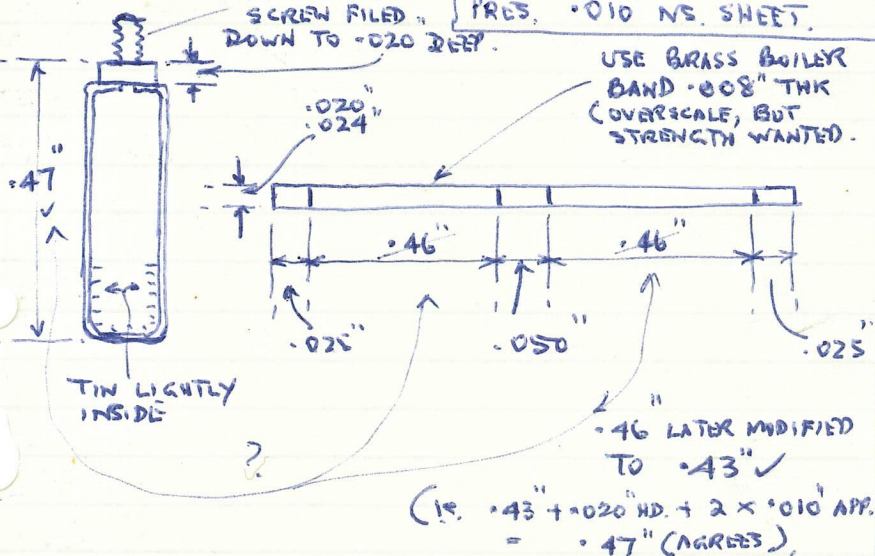 SCREW FILED
DOWN TO .020 DEEP.
PRES. .010 NS. SHEET.
USE BRASS BOILER
BAND .008" THK
(OVERSCALE, BUT
STRENGTH WANTED.
.020"
.024"
.47"
✓
.46"
.46"
.025"
.050"
.025"
TIN LIGHTLY
INSIDE
?
.46" LATER MODIFIED
TO .43" ✓
(IE. .43" + .020" HD. + 2 X .010" APP.
= .47" (AGREES.)